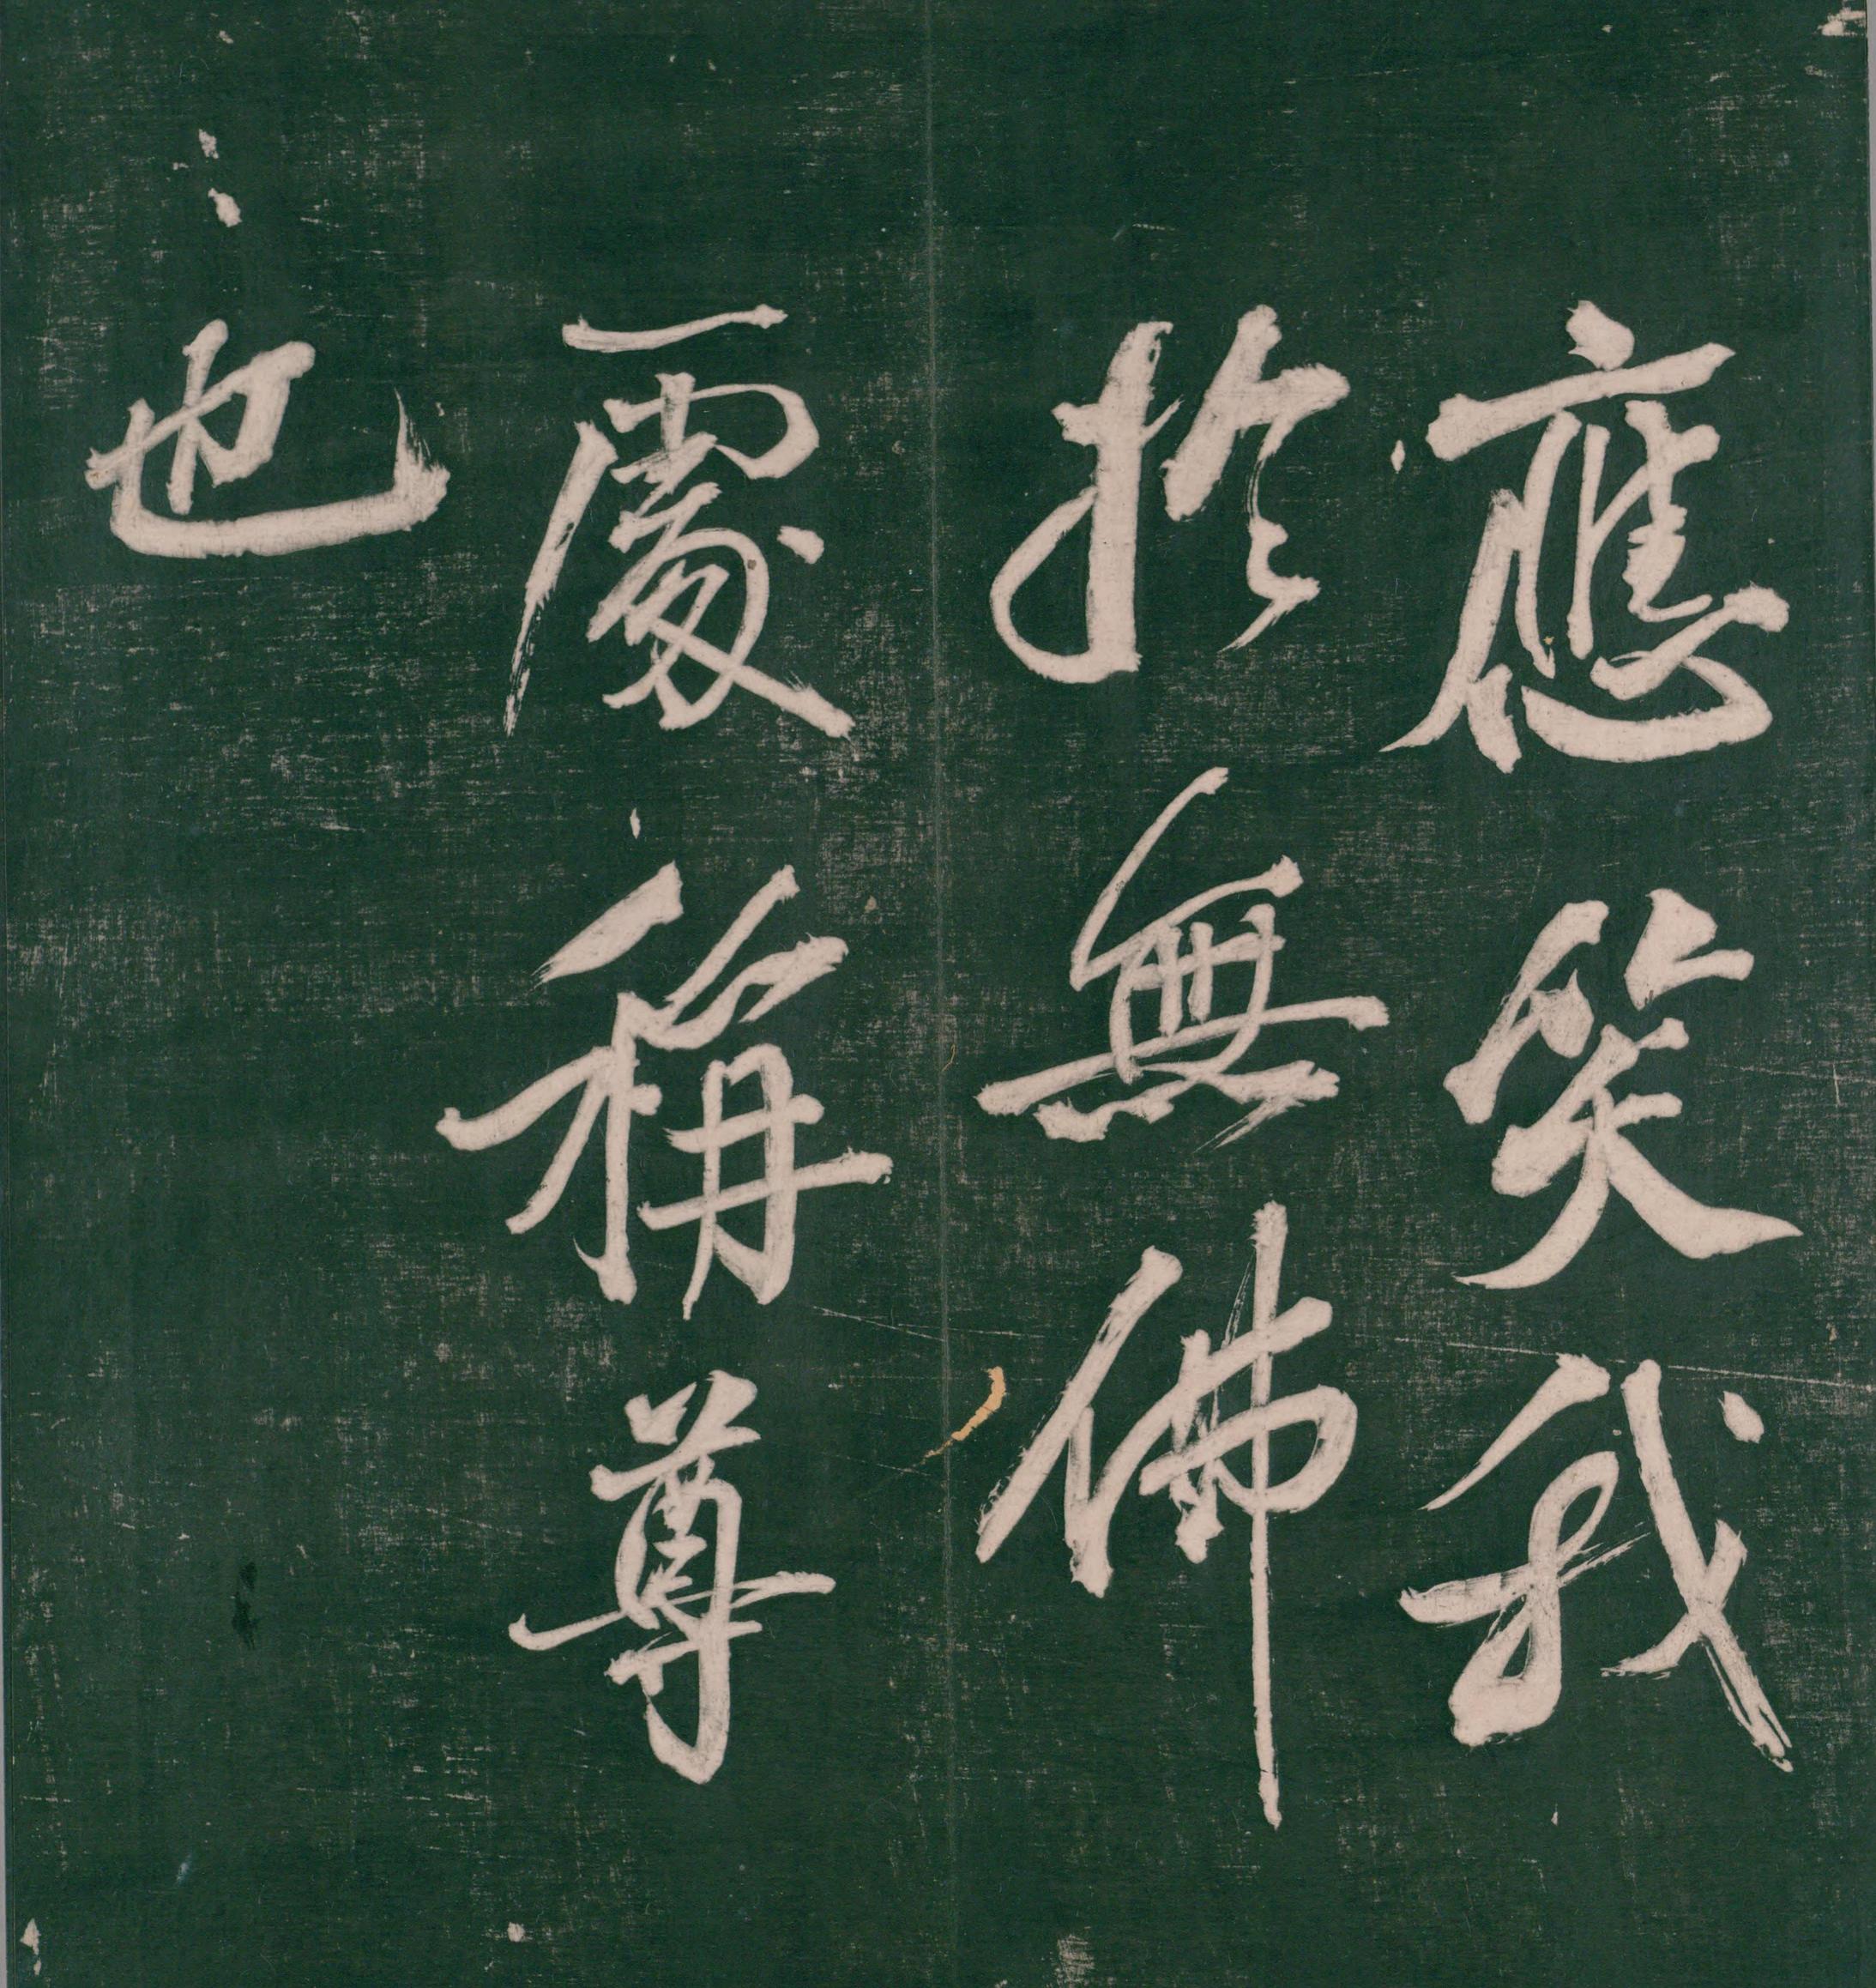 應笑我
於無佛
處稱尊
也